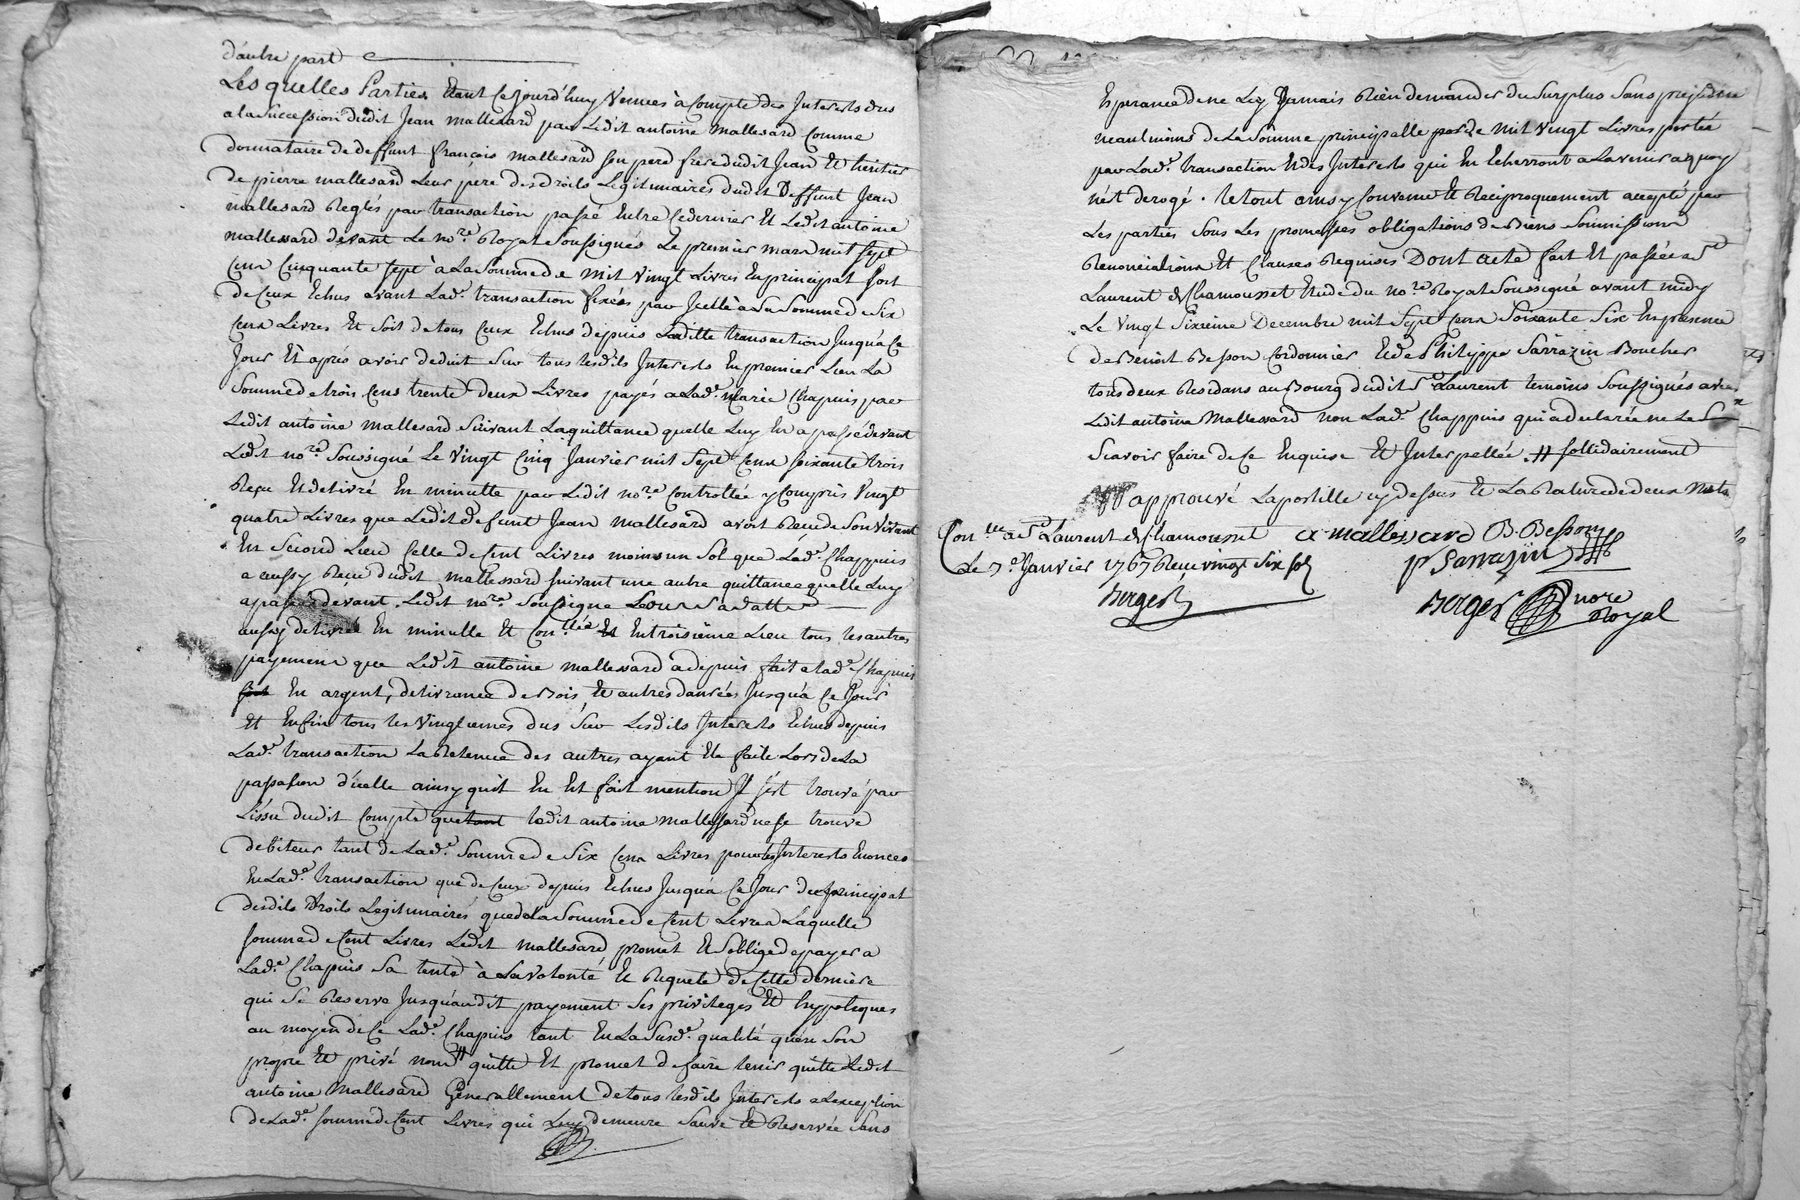 d'autre part
Lesquelles Parties Etant Cejourd'huy Venues à Compte des Interests dus
a la Succession dudit Jean Mallesard par Ledit antoine Mallesard Comme
donnataire de deffunt françois Mallesard Son pere frere dudit Jean Et heritier
de pierre mallesard Leur pere des droits Legitimaires dudit Deffunt Jean
mallesard Reglés par transaction passé Entre Ce dernier Et Ledit antoine
mallessard devant Le no.re Royal Soussignés Le premier mars mil sept
Cens Cinquante Sept à La Somme de mil vingt Livres En principal soit
de Ceux Echus avant Lad.e transaction fixées par Icelle à La Somme de Six
Cens Livres Et Soit de tous Ceux Echus depuis Ladite transaction Jusqu'à Ce
Jour Et après avoir deduit Sur tous Lesdits Interests En premier Lieu La
Somme de trois Cens trente deux Livres payés a Lad.e Marie Chapuis par
Ledit antoine mallesard Suivant La quittance quelle Luy En a passé devant
Ledit no.re Soussigné Le vingt Cinq Janvier mil Sept Cens soixante trois
Reçu Et delivré En minutte par Ledit no.re Controllée y Compris Vingt
quatre Livres que Ledit defunt Jean Mallesard avoit Reçu de Son Vivant
En Second Lieu Celle de Cent Livres moins un Sol que Lad.e Chappuis
a aussy Reçue dudit mallesard suivant une autre quittance quelle Luy
a passé devant Ledit no.re Soussigné Sa datte
aussy delivrée En minutte Et Con.llée Et En troisième Lieu tous les autres
payemens que Ledit antoine mallessard a depuis fait a lad.e Chapuis
En argent, delivrance de Bois Et autres danrées Jusqu'à Ce Jour
Et Enfin tous les vingtiemes dus Sur Lesdits Interests Echus depuis
Lad.e transaction La Retenue des autres ayant Eté faite Lors de La
passation d'icelle ainsy quil En Est fait mention Il s'est trouvé par
L'issue dudit Compte que ledit antoine Mallessard ne se trouve
debiteur tant de Lad.e Somme de Six Cens Livres pour les Interests Enoncés
En Lad.e transaction que de Ceux depuis Echus Jusqu'a Ce Jour du principal
desdits Droits Legitimaires que de La Somme de Cent Livres Laquelle
somme de Cent Livres Ledit Mallesard promet Et S'oblige de payer a
Lad.e Chapuis Sa tente à La Volonté Et Requete de Cette derniere
qui Se Reserve Jusqu'audit payement Ses privileges Et hyppoteques
au moyen de Ce Lad.e Chapuis tant En La Susd.e qualité qu'en Son
propre Et privé nom # quitte Et promet de faire tenir quitte Ledit
antoine Mallesard Generallement de tous lesdits Interests a L'exception
de Lad.e somme de Cent Livres qui Luy demeure Sauve Et Reservée Sans
Esperance de ne Luy Jamais Rien demander du Surplus Sans prejudice
neaulmoins de La Somme principalle de Mil Vingt Livres portée
par Lad.e transaction Et des Interests qui En Echerront a L'avenir a quoy
n'est derogé. le tout ainsy Convenu Et Reciproquement accepté par
Les parties Sous Les promesses obligations de Biens Soumissions
Renonciations Et Clauses Requises Dont acte fait Et passé a S.t
Laurent de Chamousset Etude du no.re Royal Soussigné avant midy
Le Vingt Sixieme Decembre mil Sept Cens Soixante Six En presence
de Benoit Besson Cordonnier Et de Philippe Sarrazin Boucher
tous deux Residans au Bourg dudit S.t Laurent temoins Soussignés avec
Ledit antoine Mallessard non Lad.e Chappuis qui a declarée ne Le
Scavoir faire de Ce Enquise Et Interpellée. # sollidairement
approuvé La postille cy dessus Et La Rature de deux mots
Con.llé a S.t Laurent de Chamousset a mallessard B. Besson
Le 7.e Janvier 1767 Reçu vingt Six sols p Sarrazin
Berger Berger nore
Royal